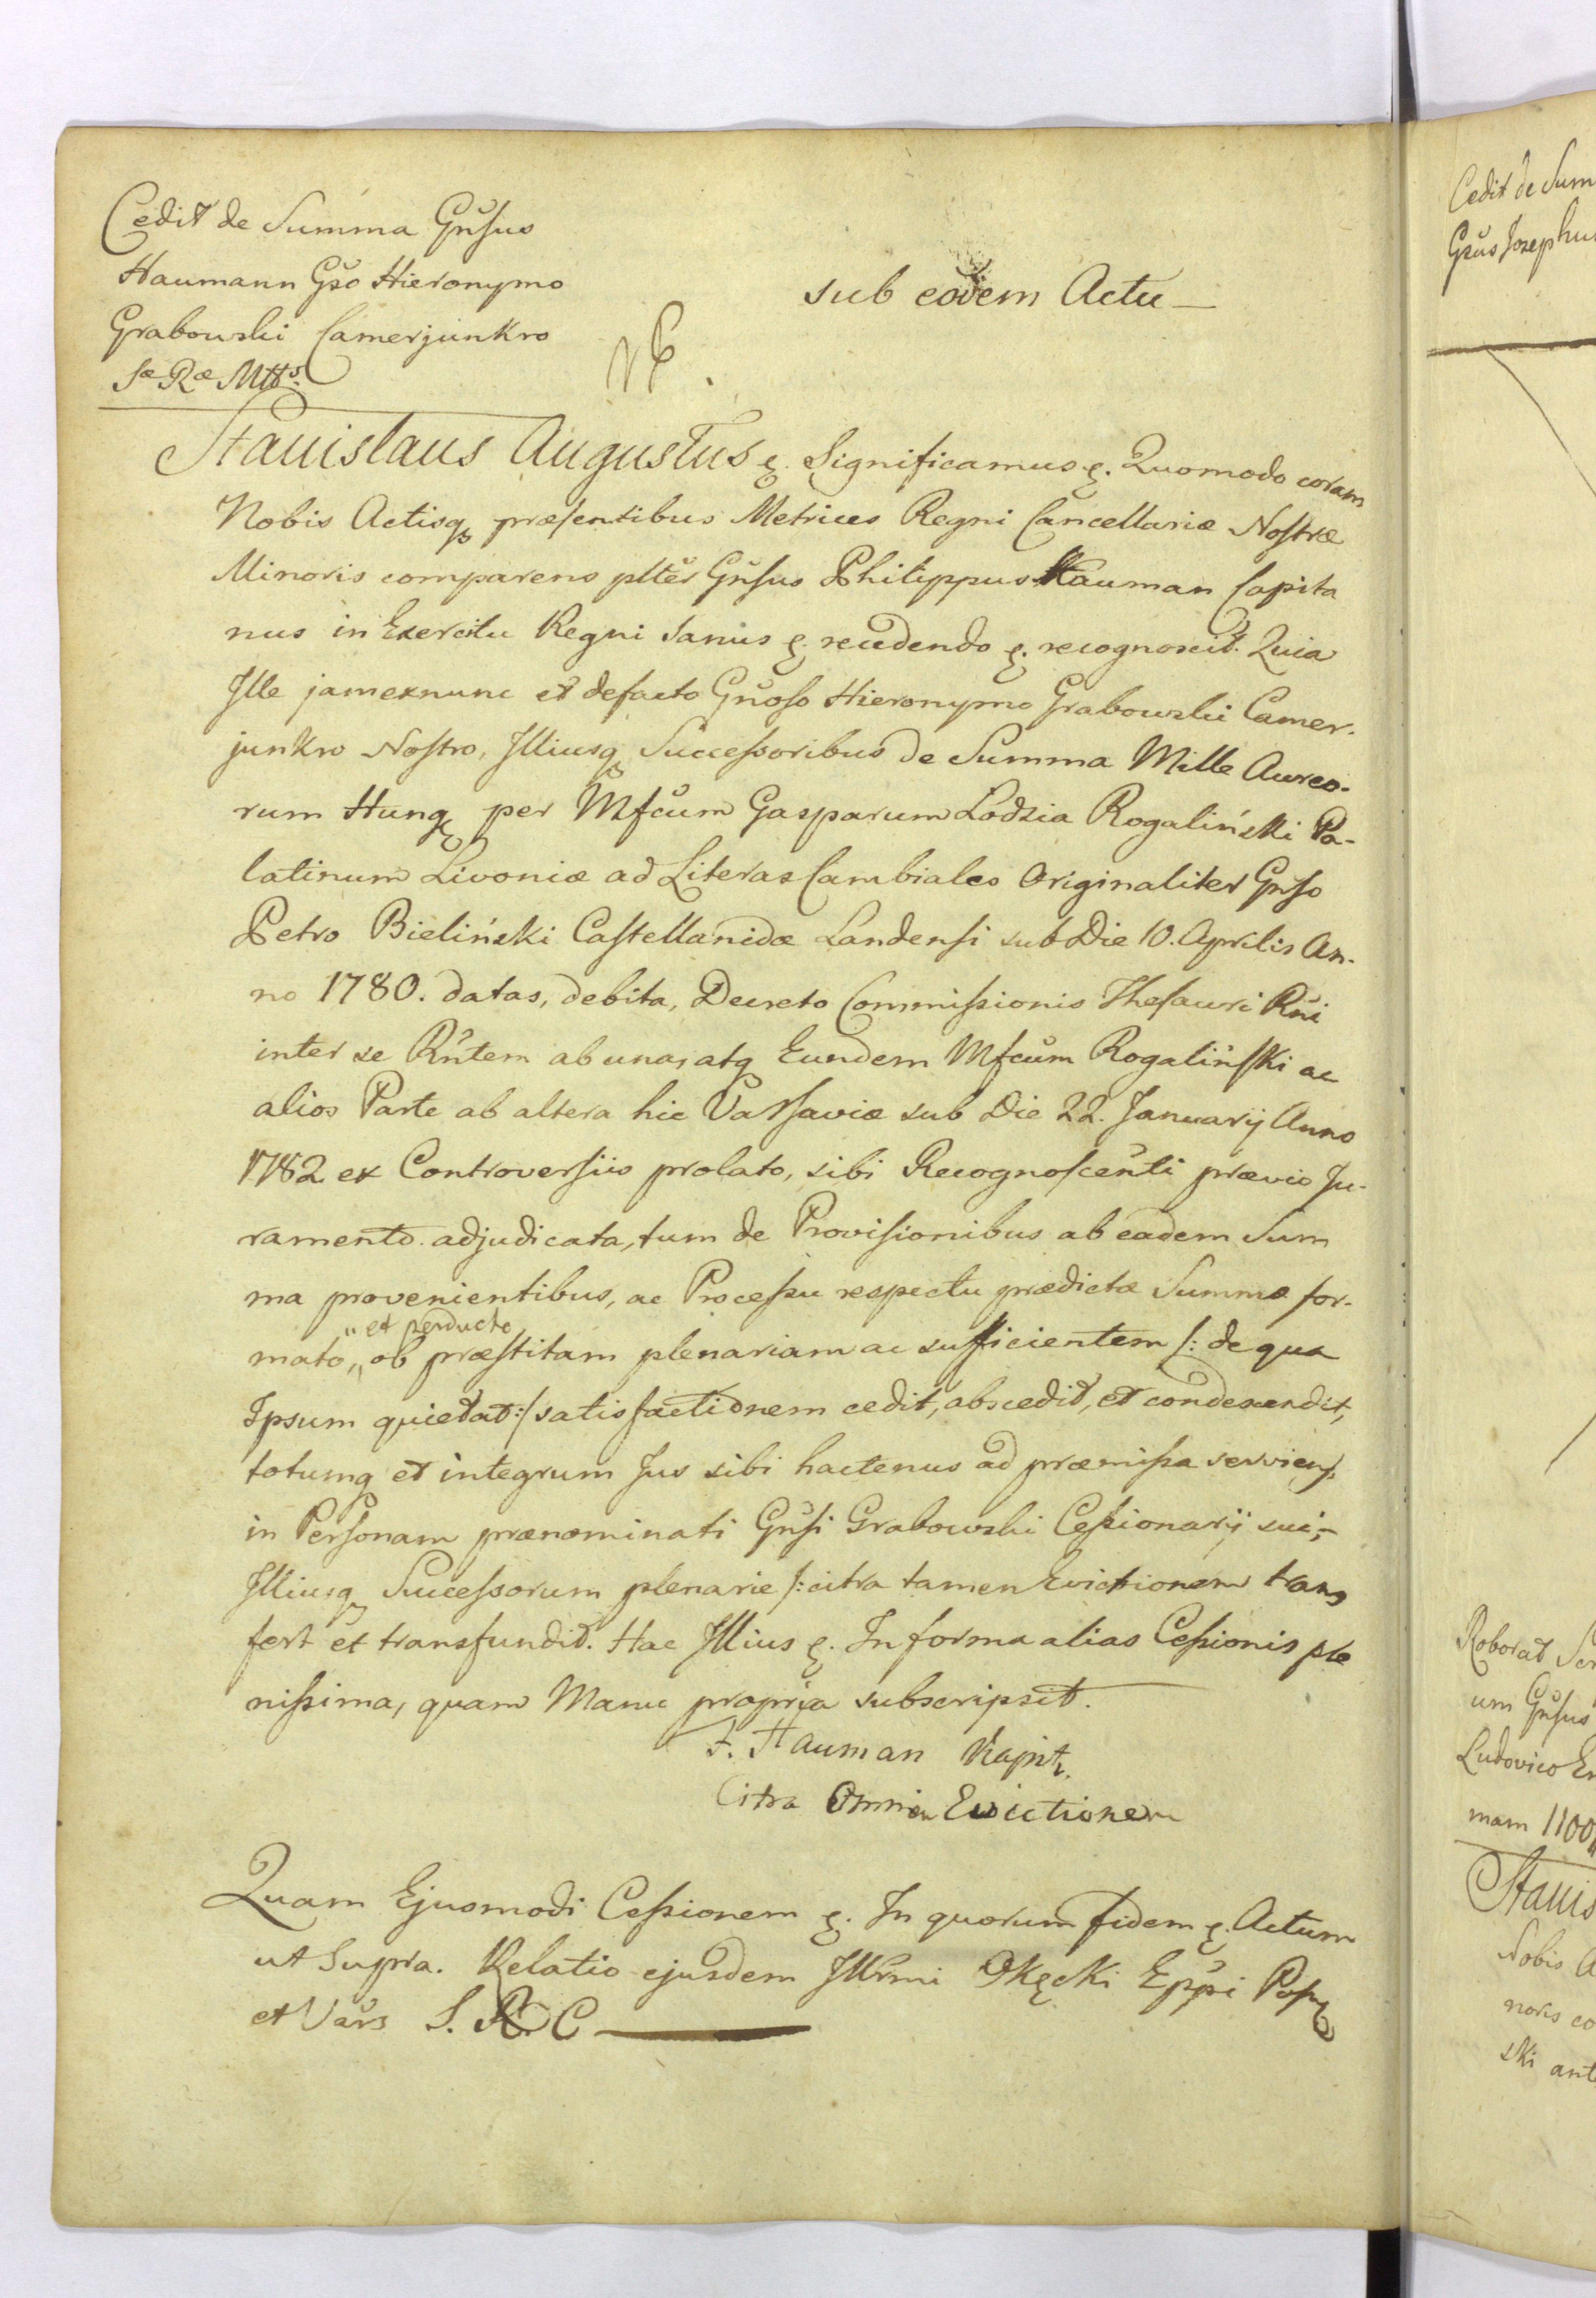 Cedit de Summa Gnsus
Haumann Gso Hieronymo
Grabowski Camerjunkro
Sæ Ræ Mtts.
sub eodem Actu
Stanislaus Augustus &. Significamus &. Quomodo coram
Nobis Actisq præsentibus Metrices Regni Cancellariæ Nostræ
Minoris comparens plter Gnsus Philippus Hauman Capita
nus in Exercitu Regni sanus & recedendo &. recognoscit. Quia
Ille jamexnunc et defacto Gnoso Hieronymo Grabowski Camer-
junkro Nostro, Illiusq Successoribus de Summa Mille Aureo-
rum Hung per Mfcum Gasparum Lodzia Rogaliński Pa-
latinum Livoniæ ad Literas Cambiales Originaliter Gnso
Petro Bieliński Castellanidæ Landensi sub Die 10. Aprilis An-
no 1780. datas, debita, Decreto Commissionis Thesauri Rni
inter se Rntem ab una, atq Eundem Mfcum Rogaliński ac
alios Parte ab altera hic Varsaviæ sub Die 22. Januarij Anno
1782 ex Controversiis prolato, sibi Recognoscenti prævio Ju-
ramento adjudicata, tum de Provisionibus ab eadem Sum
ma provenientibus, ac Processu respectu prædictæ Summæ for-
" et perducto
mato, " ob præstitam plenariam ac sufficientem /: de qua
Ipsum quietat :/ satisfactionem cedit, abscedit, et condescendit,
totumq et integrum Jus sibi hactenus ad præmissa serviens,
in Personam prænominati Gnsi Grabowski Cessionarij sui,
Illiusq Successorum plenarie /: citra tamen Evictionem trans
fert et transfundit. Hac Illius &. In forma alias Cessionis ple
nissima, quam Manu propria subscripsit.
F. Hauman Kapit.
Citra Omnem Evictionem
Quam Ejusmodi Cessionem &. In quorum fidem &. Actum
ut Supra. Relatio ejusdem Illrmi Okęcki Eppi Posn
et Vars S. R. C
Cedit de Sum
Gsus Josephus
Roborat Scr
um Gnsus
Ludovico
mam 1100
Stanis
Nobis A
noris co
ski ante